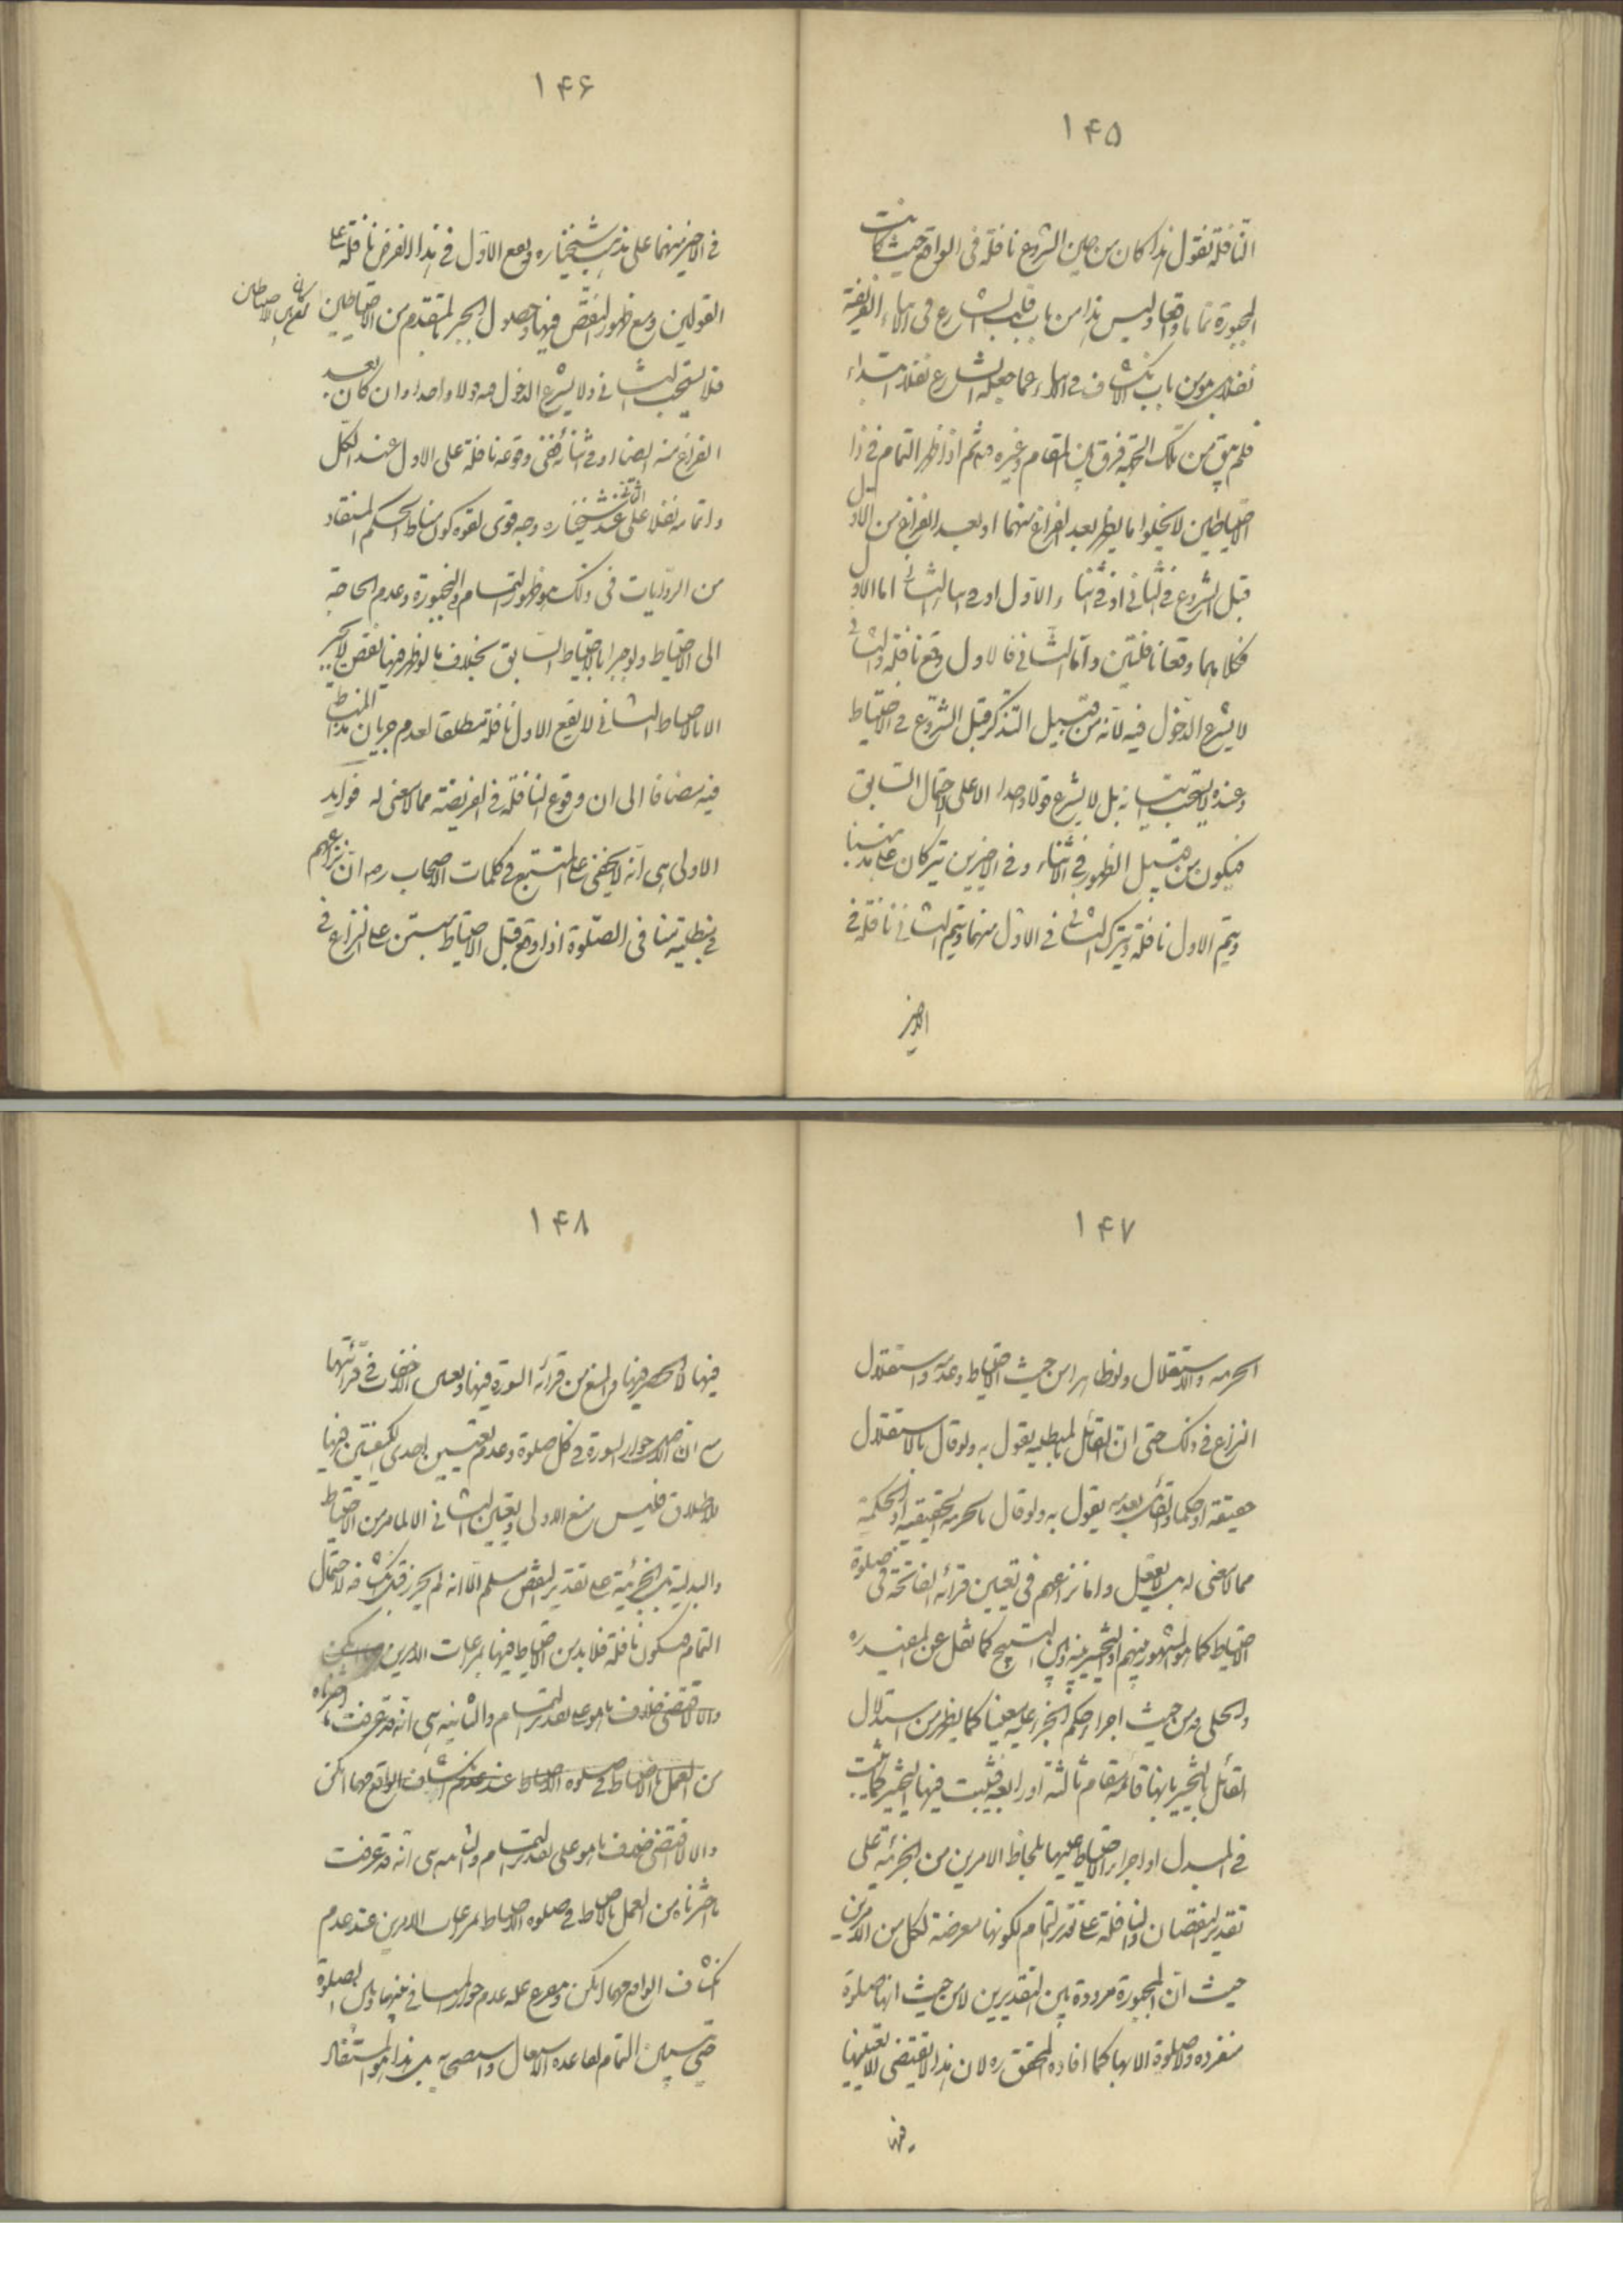 ۱۴۵
النّافلة نقول هذا كان من حين الشروع نافلة فى الواقع حيث كانت
المجبورة تماما واقعا وليس هذا من باب قلب الشارع فى الاثناء الفريضة
نفلا بل هو من باب انكشاف فى الاثناء عما جعله الشارع نفلا ابتداء
فلم يبق من تلك الجهة فرق بين المقام وغيره ثم اذا ظهر التمام فى ذا
الاحتياطين لا يخلو اما يظهر بعد الفراغ منهما او بعد الفراغ من الاول
قبل الشروع فى الثانى او فى اثناء الاول او فى اثناء الثانى اما الاول
فكلاهما وقعا نافلتين واما الثانى فالاول وقع نافلة والثانى
لا يشرع الدخول فيه لانه من قبيل التذكر قبل الشروع فى الاحتياط
وعنده لا يستحب اتيانه بل لا يشرع قولا واحدا الا على الاحتمال السابق
فيكون من قبيل الظهور فى الاثناء وفى الاخيرين يتركان على مذهبنا
ويتم الاول نافلة ويترك الثانى فى الاول منهما ويتم الثانى نافلة فى
الاخير
۱۴۶
فى الاخير منهما على مذهب شيخنا ره وقع الاول فى هذا الفرض نافلة على
القولين ومع ظهور النقص فيهما وحصول الجبر بالمتقدم من الاحتياطين
فلا يستحب الثانى ولا يشرع الدخول فيه قولا واحدا وان كان بعد
الفراغ منه ايضا او فى اثنائه ففى وقوعه نافلة على الاول عند الكل
واتمامه نفلا على الثانى عند شيخنا ره وجه قوى لقوة كون مناط الحكم المستفاد
من الروايات فى ذلك هو ظهور التمام فى المجبورة وعدم الحاجة
الى الاحتياط ولو جبرا بالاحتياط السابق بخلاف ما لو ظهر فيها نقص لا يجبر
الا بالاحتياط الثانى لا يقع الاول نافلة مطلقا لعدم جريان هذا المناط
فيه مضافا الى ان وقوع النافلة فى الفريضة مما لا معنى له فوايد
الاولى هى انه لا يخفى على المتتبع فى كلمات الاصحاب ره ان نزاعهم
فى مبطلية منافى الصلوة اذا وقع قبل الاحتياط مبتن على النزاع فى
۱۴۷
الجزئية والاستقلال ولو ظاهرا من حيث الاحتياط وعدمه واستقلال
النزاع فى ذلك حتى ان القائل بالمبطلية يقول به ولو قال بالاستقلال
حقيقة او حكما والقائل بعدمه يقول به ولو قال بالجزئية الحقيقية او الحكمية
مما لا معنى له بل لا يعقل واما نزاعهم فى تعيين قرائة الفاتحة فى صلوة
الاحتياط كما هو المشهور بينهم او التخيير بينه وبين التسبيح كما نقل عن المفيد ره
والحلى فمن حيث اجراء حكم الجزء عليه معينا كما يظهر من استدلال
القائل بالتخيير بانها قائمة مقام ثالثة او رابعة فيثبت فيها التخيير كما يثبت
فى المبدل او اجراء الاحتياط عليها بلحاظ الامرين من الجزئية على
تقدير النقصان والنافلة على تقدير التمام لكونها معرضة لكل من الامرين
حيث ان المجبورة مرددة بين التقديرين لا من حيث انها صلوة
منفردة ولا صلوة الا بها كما افاده المحقق ره لان هذا لا يقتضى الا تعيينها
فيها
۱۴۸
فيها لا الحصر فيها والمنع من قرائة السورة فيها وتعين الاخفات فى قرائتها
مع ان الاصل جواز السورة فى كل صلوة وعدم تعيين احدى الكيفيتين فيها
للاطلاق فليس منع الاولى وتعيين الثانى الا لما مر من الاحتياط
والبدلية بل الجزئية على تقدير النقص مسلم الا انه لم يحرز قبل انكشافه لاحتمال
التمام فيكون نافلة فلا بد من الاحتياط فيها بمراعات الامرين مهما امكن
والا لاقتضى خلاف ما هو على تقدير التمام والثانية هى انه قد عرفت ما اخترناه
من العمل بالاحتياط فى صلوة الاحتياط عند عدم انكشاف الواقع مهما امكن
والا لاقتضى خلاف ما هو على تقدير التمام والثانية هى انه قد عرفت
ما اخترناه من العمل بالاحتياط فى صلوة الاحتياط بمراعات الامرين عند عدم
انكشاف الواقع مهما امكن ويتفرع عليه عدم جواز المنافى بينها وبين الصلوة
حتى يتبين التمام لقاعدة الاشتغال واستصحابه بل هذا هو المستفاد